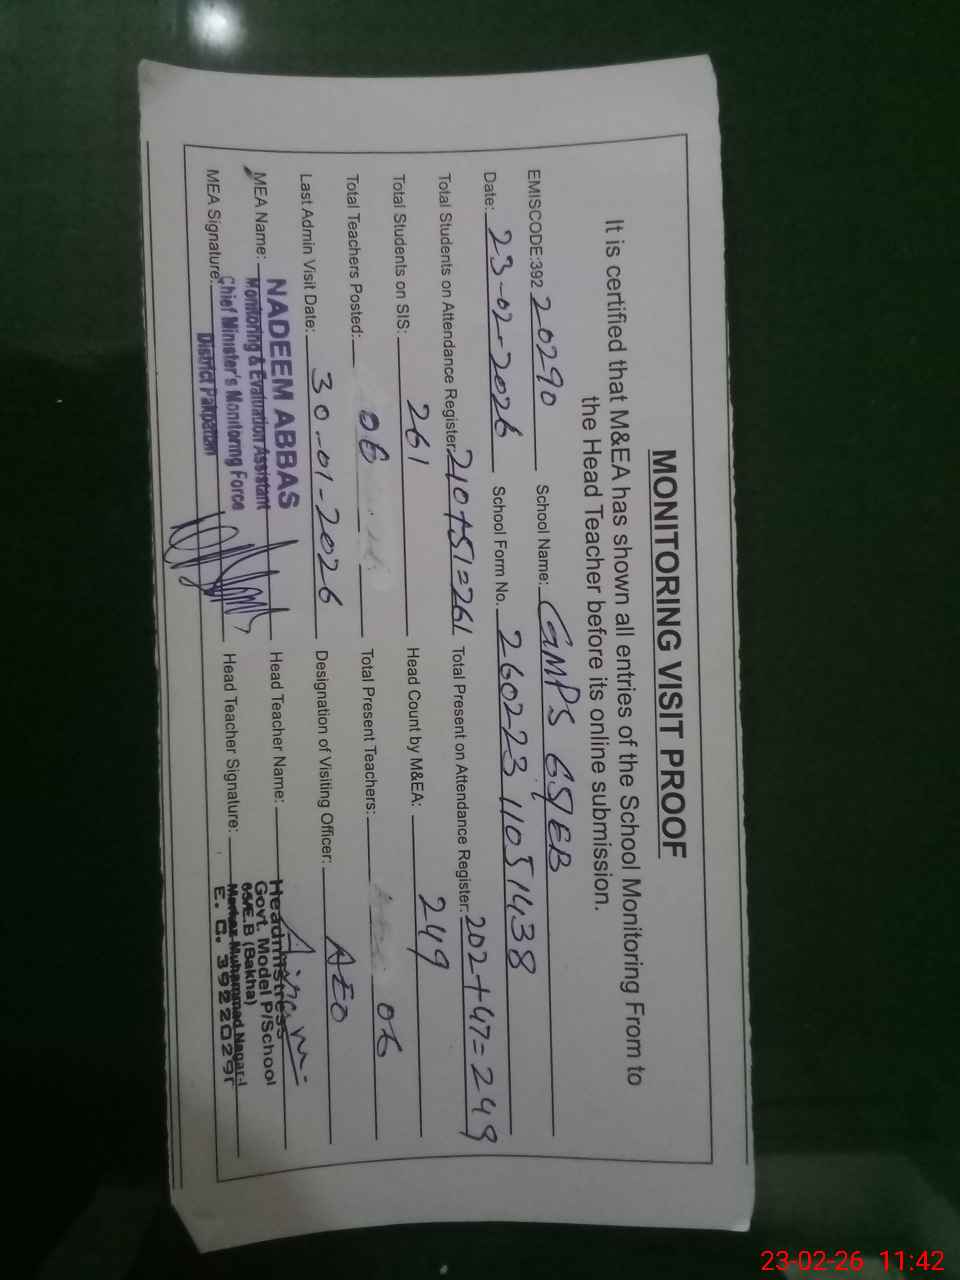 MONITORING VISIT PROOF
It is certified that M&EA has shown all entries of the School Monitoring From to
the Head Teacher before its online submission.
EMISCODE:392 20290 School Name: GMPS 65/EB
Date: 23-02-2026 School Form No. 260223 11051438
Total Students on Attendance Register: 210+51=261 Total Present on Attendance Register: 202+47=249
Total Students on SIS: 261 Head Count by M&EA: 249
Total Teachers Posted: 06 Total Present Teachers: 06
Last Admin Visit Date: 30-01-2026 Designation of Visiting Officer: AEO
MEA Name: NADEEM ABBAS Head Teacher Name:
Monitoring & Evaluation Assistant
Chief Minister's Monitoring Force
District Pakpattan
MEA Signature: Head Teacher Signature:
Headmistress
Govt. Model P/School
65/E.B (Bakha)
Markaz Muhammad Nagar-I
E. C. 3922029
23-02-26 11:42